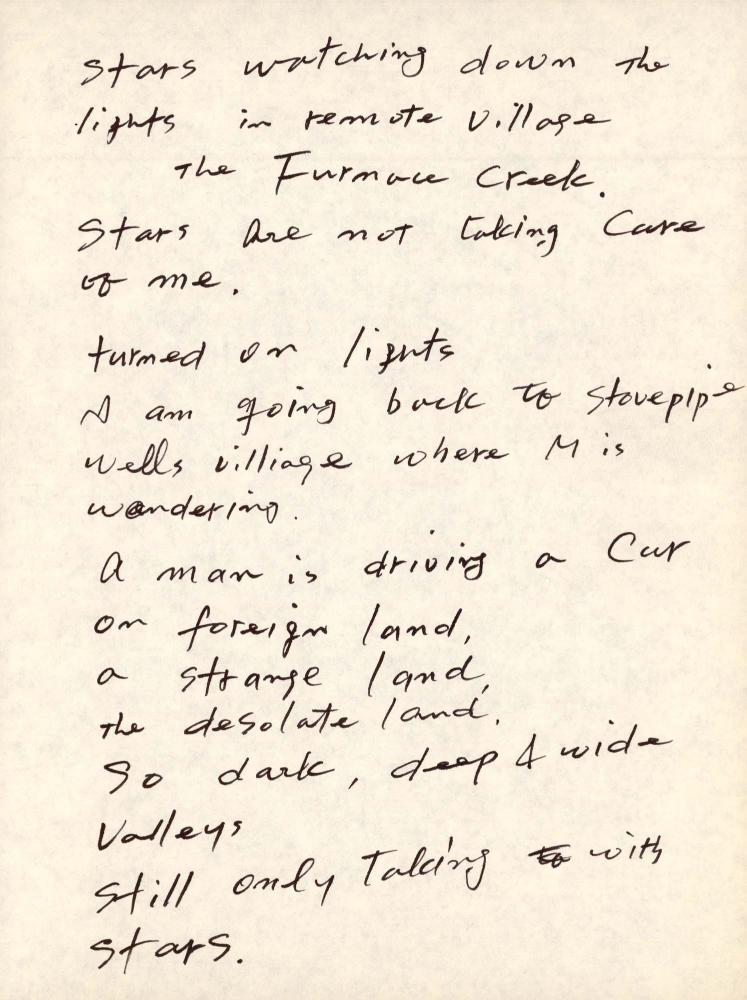 Stars watching down the
lights in remote village
the Furnace Creek.
Stars are not taking Care
of me.
turned on lights
I am going back to stovepipe
wells villiage where M is
wandering.
A man is driving a Car
on foreign land,
a strange land,
the desolate land.
So dark, deep & wide
Valleys
still only talking to with
stars.